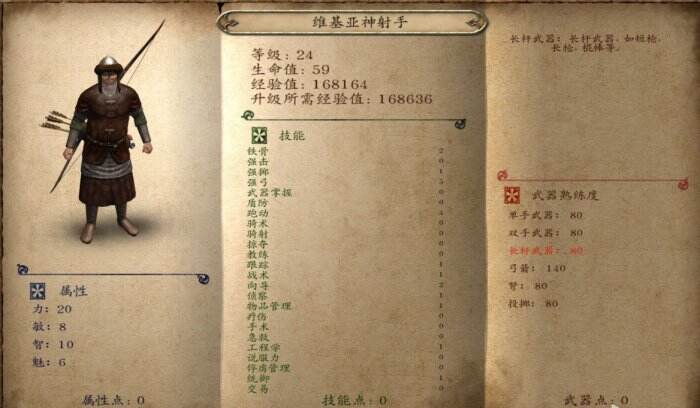 维基亚神射手
等级: 24
生命值: 59
经验值: 168164
升级所需经验值: 168636
技能
铁骨 2
强击 0
强掷 1
强弓 5
武器掌握 0
盾防 0
跑动 4
骑术 0
骑射 0
掠夺 0
教练 0
跟踪 1
战术 1
向导 2
侦察 1
物品管理 1
疗伤 0
手术
急救
工程学 1
说服力 1
俘虏管理 1
统御
交易 0
技能点: 0
属性
力: 20
敏: 8
智: 10
魅: 6
属性点: 0
长杆武器: 长杆武器, 如短枪,
长枪, 棍棒等。
武器熟练度
单手武器: 80
双手武器: 80
长杆武器: 80
弓箭: 140
弩: 80
投掷: 80
武器点: 0